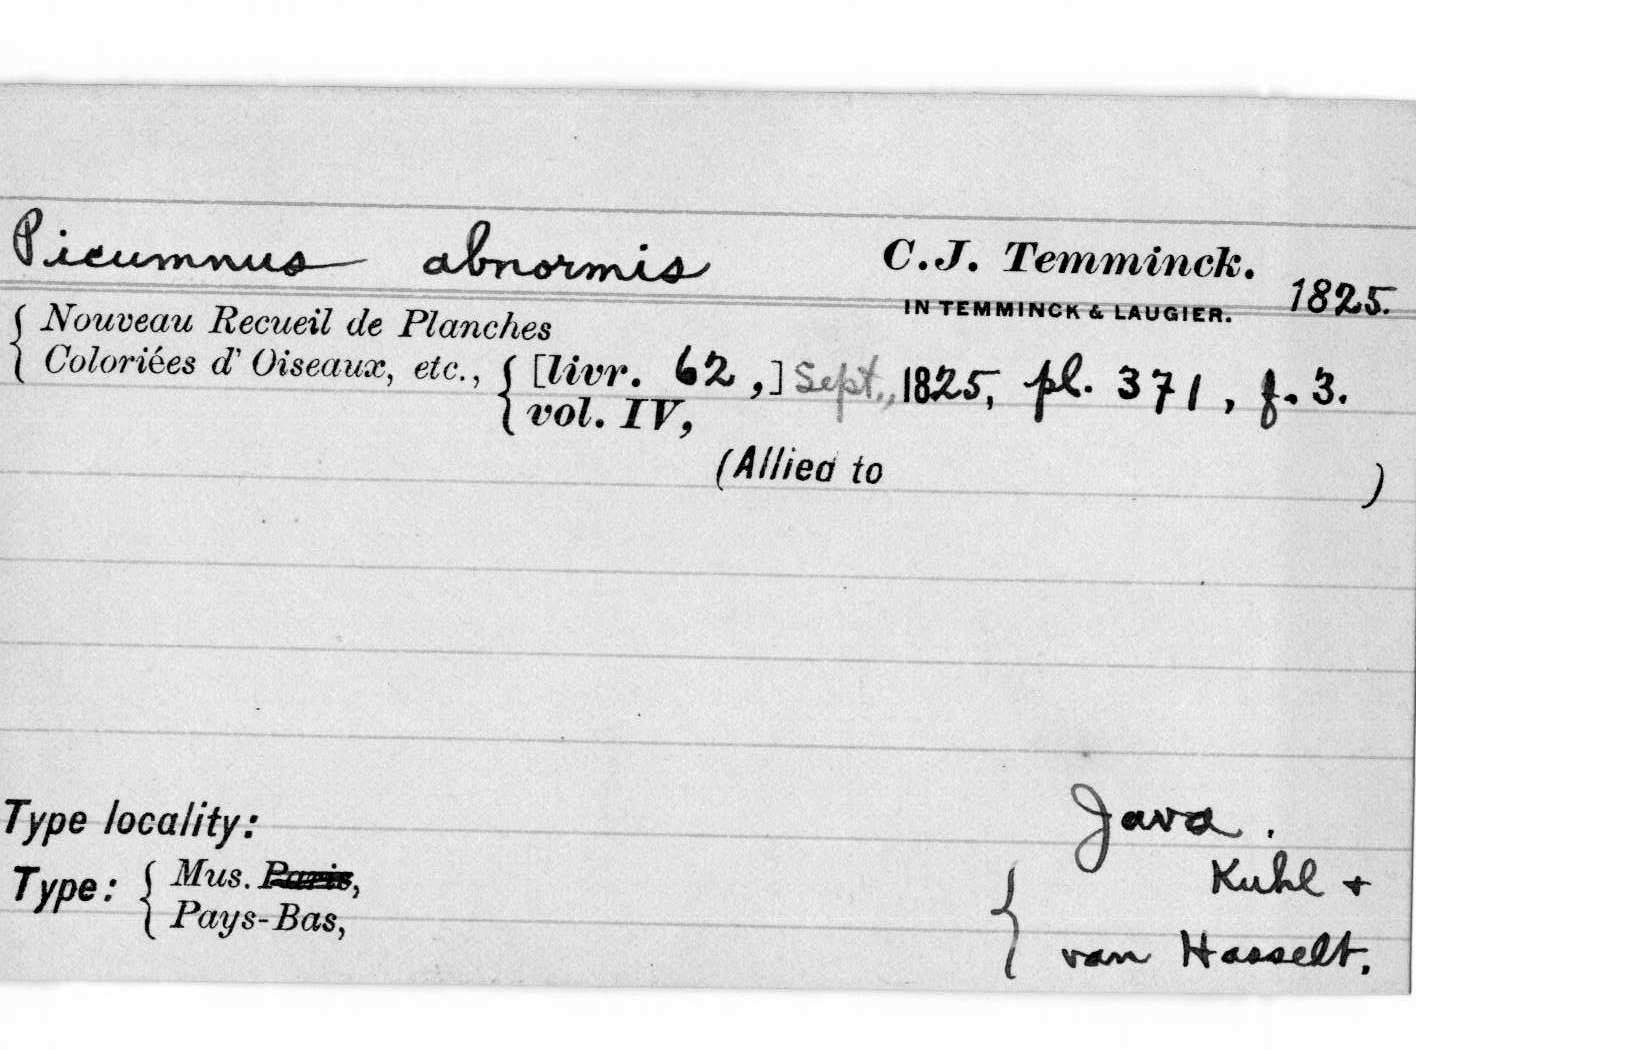 Picumnus abnormis C.J. Temminck.
IN TEMMINCK & LAUGIER. 1825.
{ Nouveau Recueil de Planches
Coloriées d'Oiseaux, etc., { [livr. 62,] Sept., 1825, pl. 371, f. 3.
vol. IV,
(Allied to )
Type locality: Java.
Type: { Mus. Paris, { Kuhl +
Pays-Bas, van Hasselt.